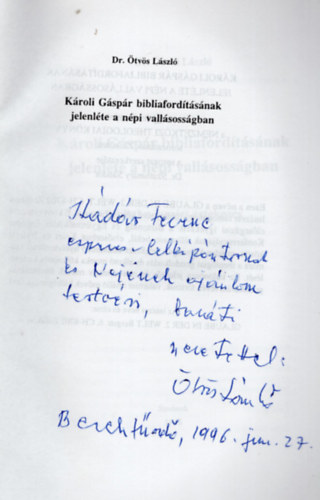 Dr. Ötvös László
Károli Gáspár bibliafordításának
jelenléte a népi vallásosságban
Ferenc
esperes-lelkipásztornak
és Nejének ajánlom
testvéri, baráti
szeretettel:
Ötvös László
Berekfürdő, 1996. jun. 27.